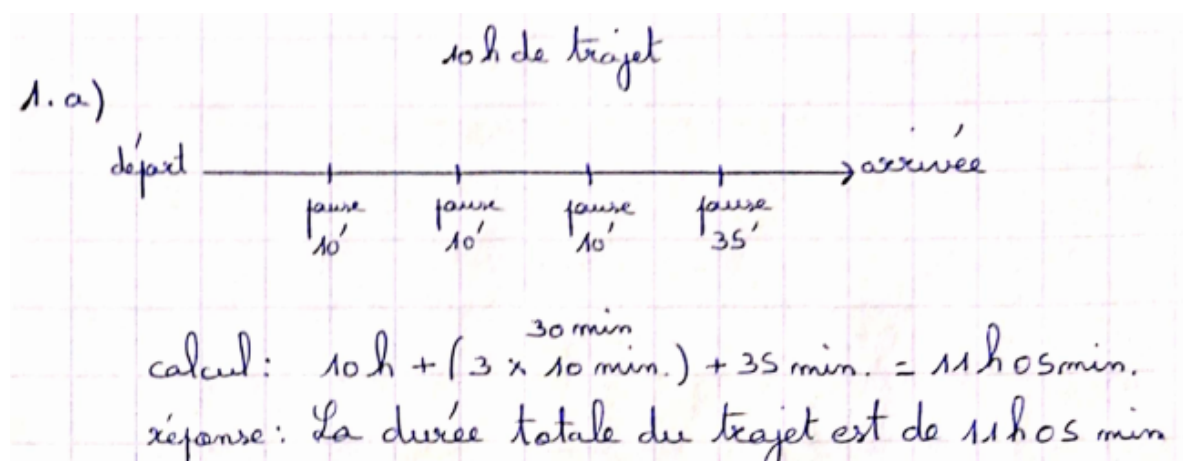 10 h de trajet
1. a)
départ arrivée
pause pause pause pause
10' 10' 10' 35'
30 min
calcul : 10 h + (3 x 10 min.) + 35 min. = 11 h 05 min.
réponse : La durée totale du trajet est de 11 h 05 min